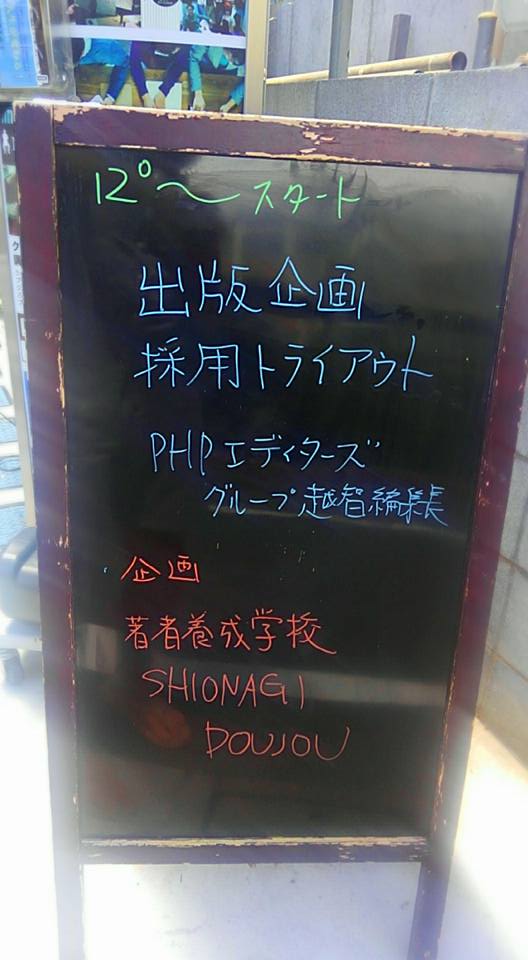 12⁰〜スタート
出版企画
採用トライアウト
PHPエディターズ
グループ越智編集長
・企画
著者養成学校
SHIONAGI
DOUJOU